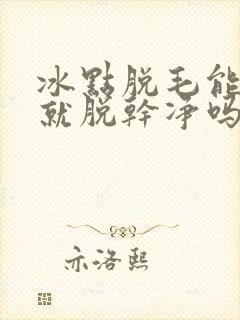 冰點脱毛能
就脱幹净吗
亦洛熙